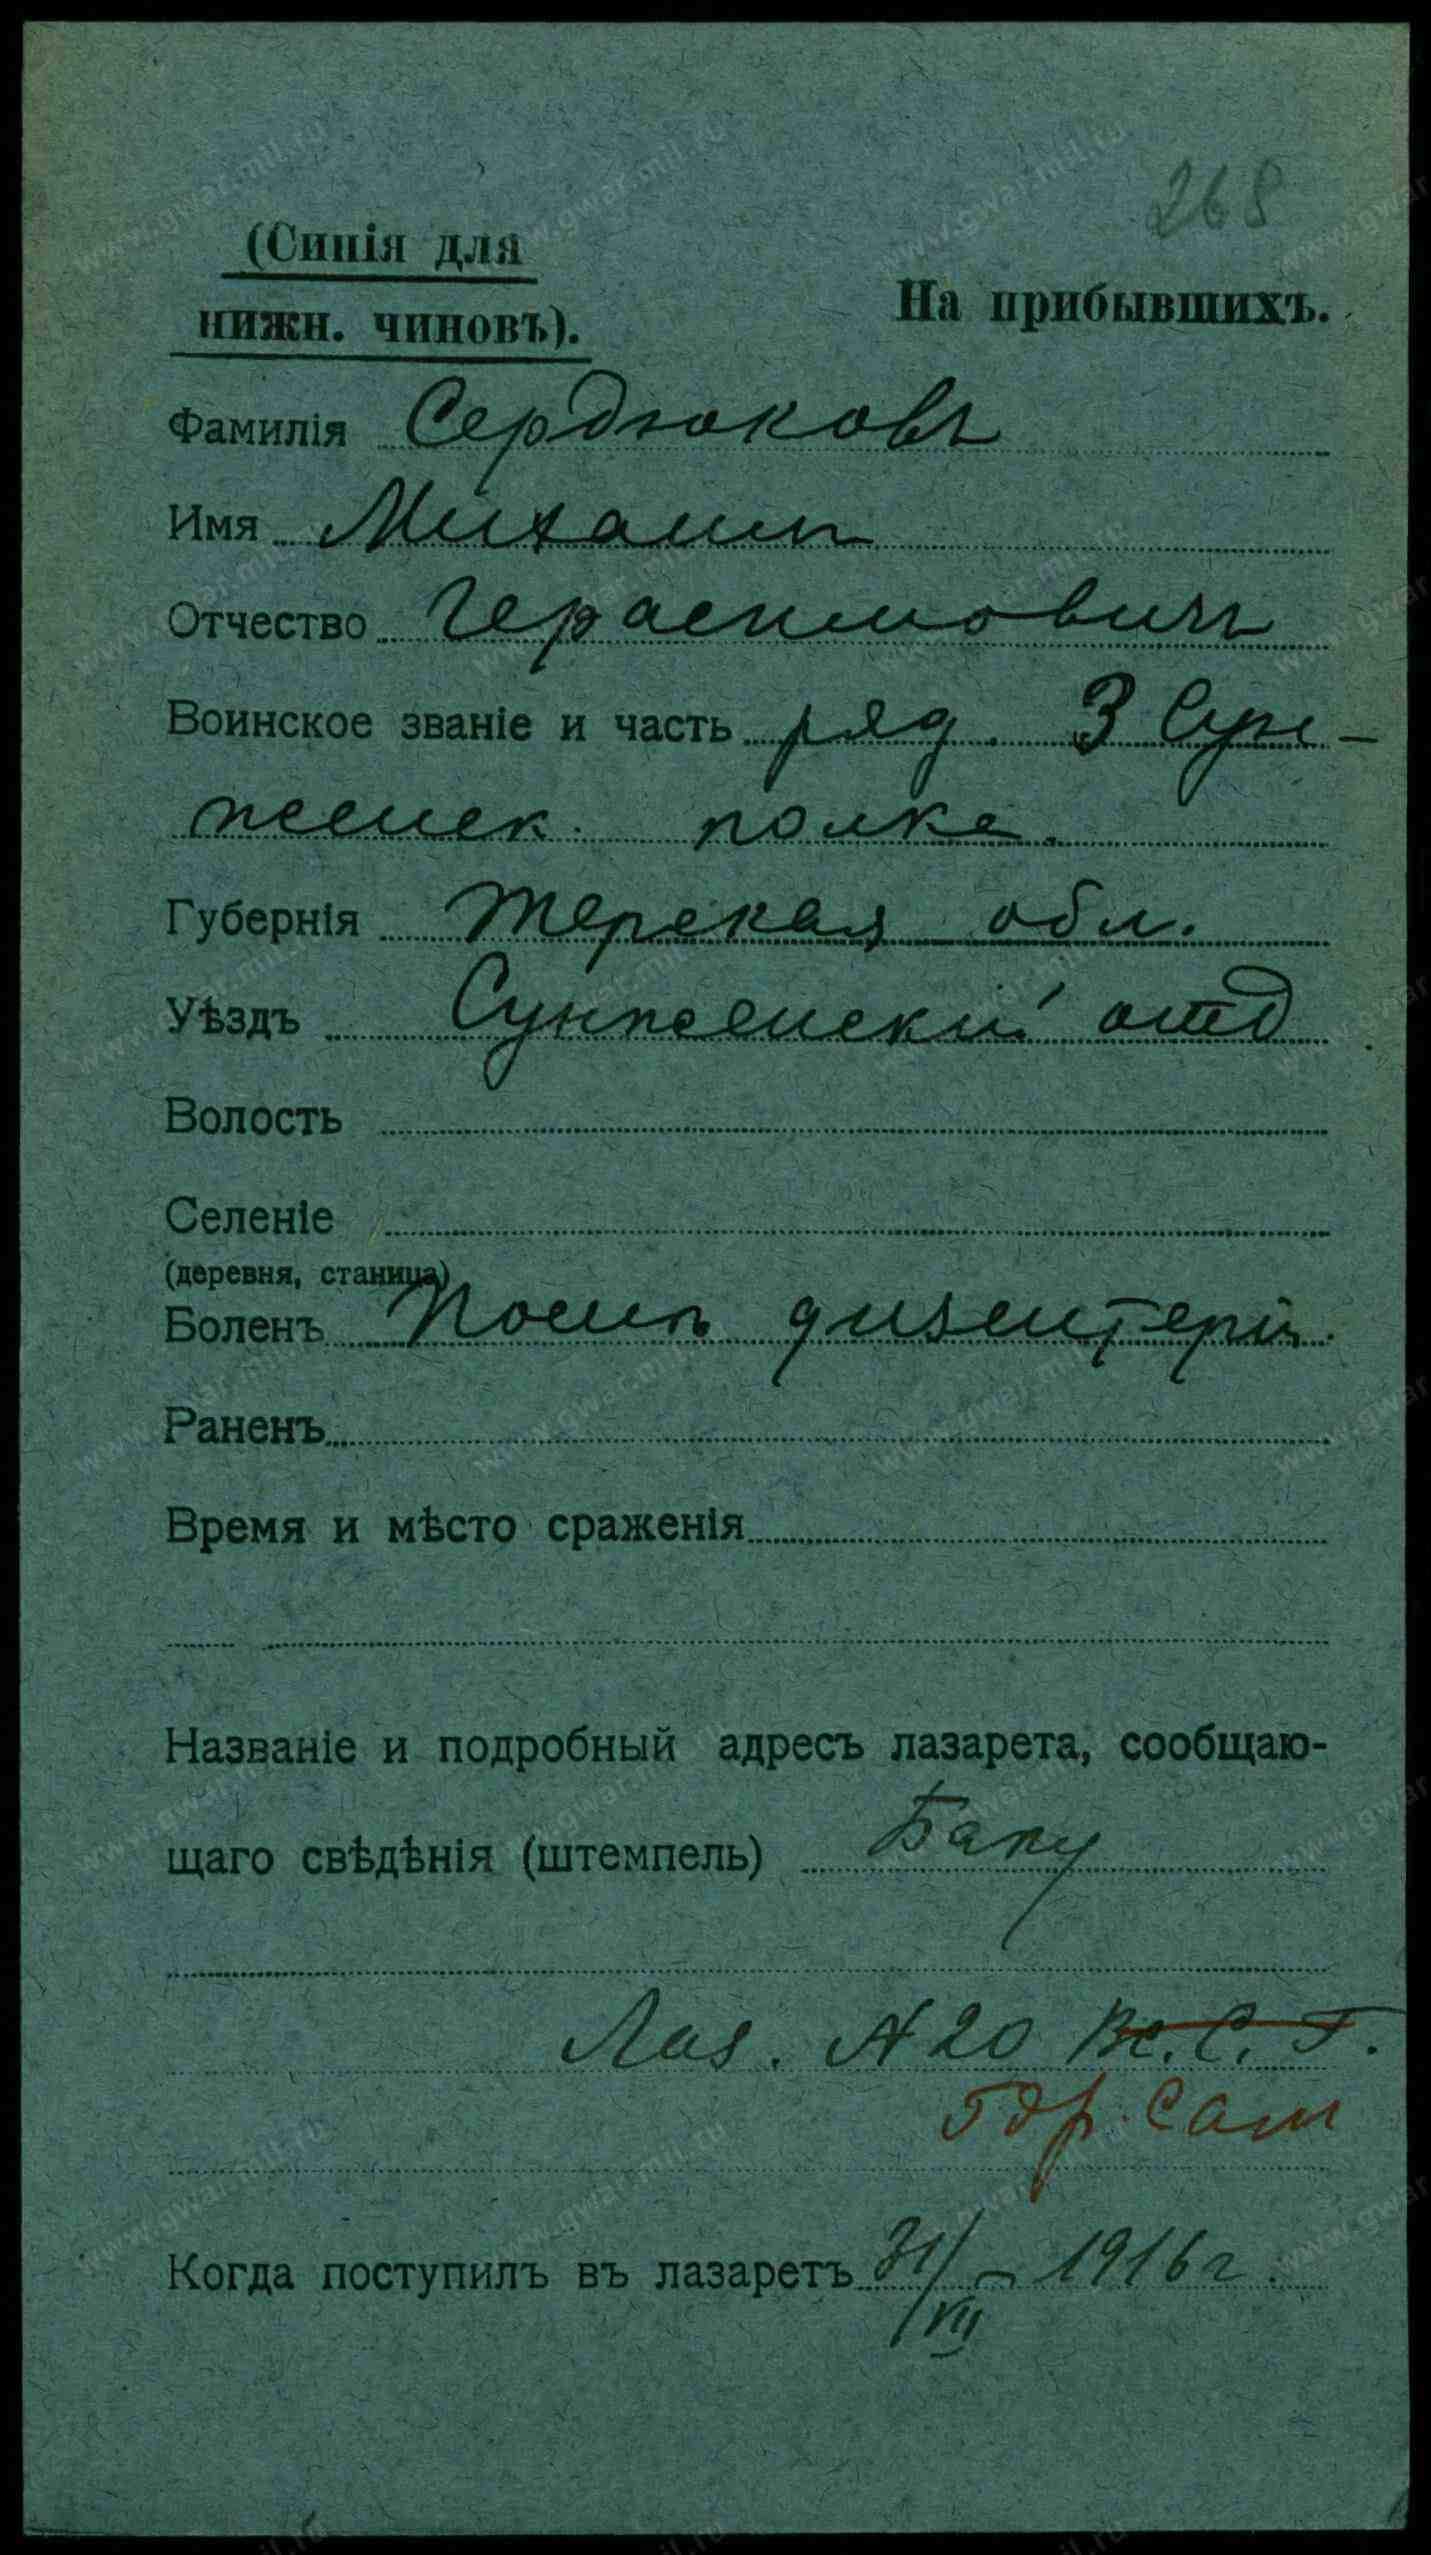 268
(Синія для
нижн. чиновъ).
На прибывшихъ.
Фамилія Сердюковъ
Имя Михаилъ
Отчество Герасимовичъ
Воинское званіе и часть ряд. 3 Сун-
женск. полка.
Губернія Терская обл.
Уѣздъ Сунженскій отд
Волость
Селеніе
(деревня, станица)
Боленъ Послѣ дизентеріи.
Раненъ
Время и мѣсто сраженія
Названіе и подробный адресъ лазарета, сообщаю-
щаго свѣдѣнія (штемпель) Баку
Лаз. N 20 В.С.Г.
Гор. Сам
Когда поступилъ въ лазаретъ 31/VII - 1916 г.